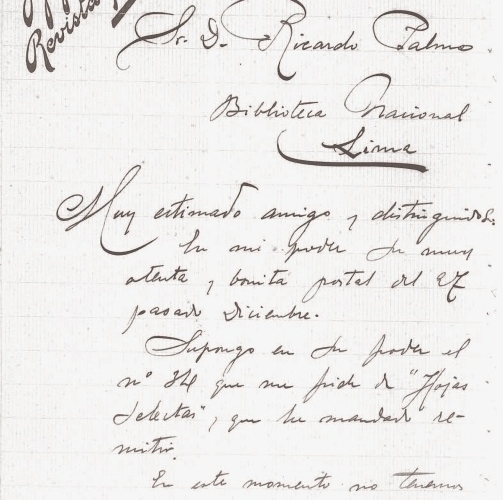 Revista
Sr. D. Ricardo Palma
Biblioteca Nacional
Lima
Muy estimado amigo y distinguido Sr:
En mi poder su muy
atenta y bonita postal del 27
pasado Diciembre.
Supongo en su poder el
nº que me pide de "Hojas
Selectas", que he mandado re-
mitir.
En este momento no tenemos